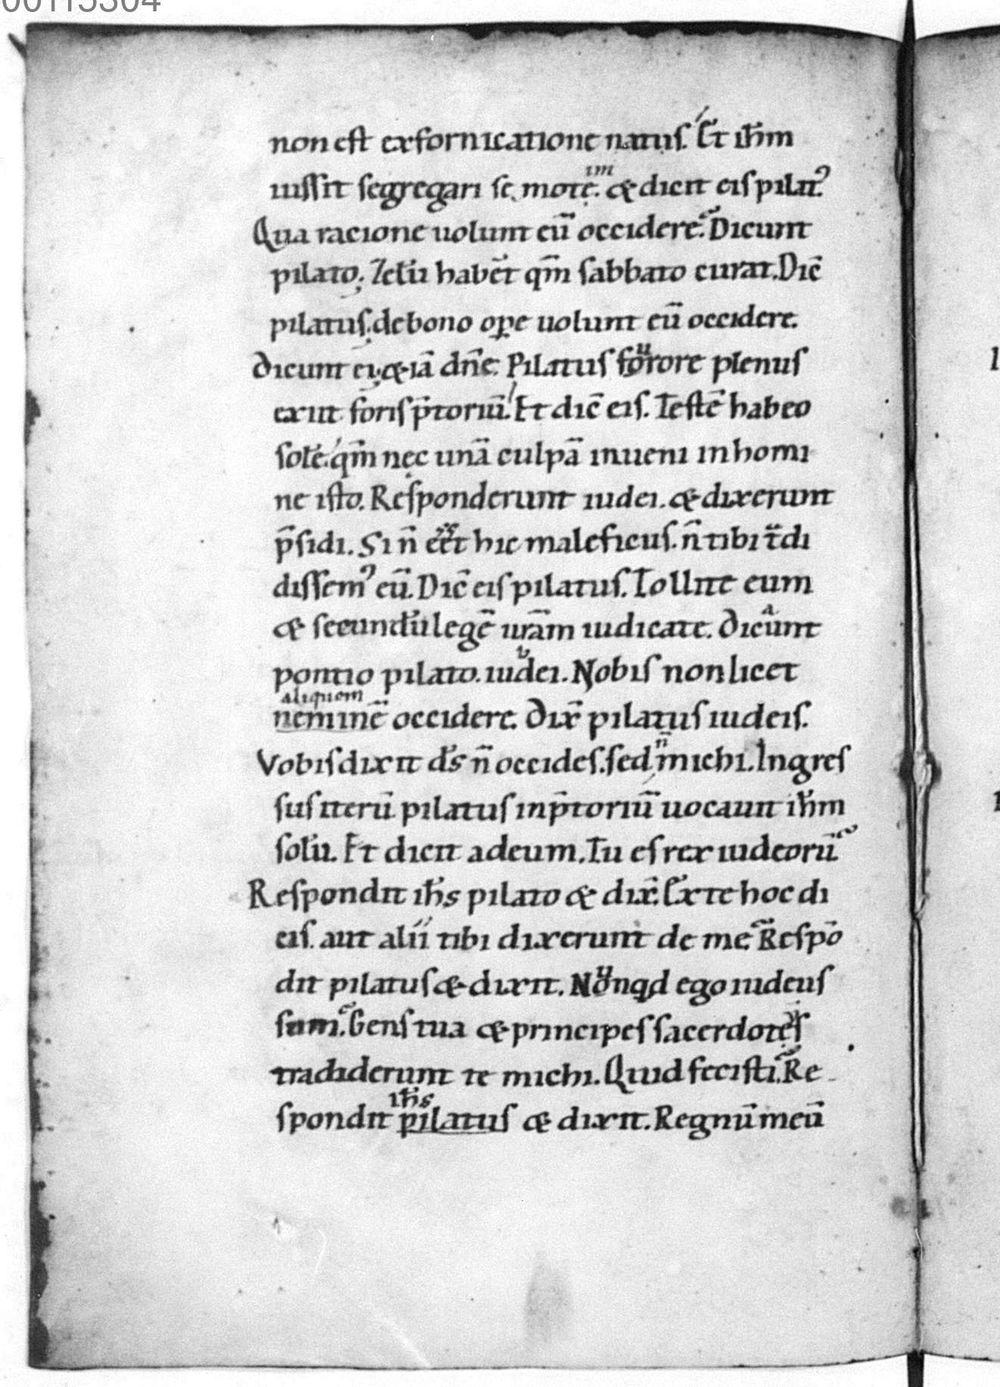 00115304
non est ex fornicatione natus. Et ih̅m
im
iussit segregari se mote. & dicit eis pilat᾿
Qua racione uolunt eu̅ occidere. Dicunt
pilato. Zelu̅ habe̅t qm̅ sabbato curat. Dic̅
pilatus. de bono ope uolunt eu̅ occidere.
dicunt ei. & ia̅ dn̅e. Pilatus forore plenus
exiit foris p̅toriu̅. Et dic̅ eis. Teste̅ habeo
sole̅. qm̅ nec una̅ culpa̅ inueni in homi
ne isto. Responderunt iudei. & dixerunt
p̅sidi. Si n̅ eet hic maleficus. n̅ tibi t̅di
dissem᾿ eu̅. Dic̅ eis pilatus. Tollite eum
& secundu̅ lege̅ ura̅m iudicate. Dicunt
pontio pilato. iudei. Nobis non licet
aliquem
nemine̅ occidere. Dix̅ pilatus iudeis.
Vobis dixit ds̅ n̅ occides. sed n̅ michi. Ingres
sus iteru̅ pilatus in p̅toriu̅ uocauit ih̅m
solu̅. Et dicit ad eum. Tu es rex iudeoru̅
Respondit ih̅s pilato & dix̅. Ex te hoc di
cis. aut alii tibi dixerunt de me. Respo̅
dit pilatus & dixit. Nonqd ego iudeus
sum. Gens tua & principes sacerdotes
tradiderunt te michi. Quid fecisti. Re-
ih̅s
spondit pilatus & dixit. Regnu̅ meu̅